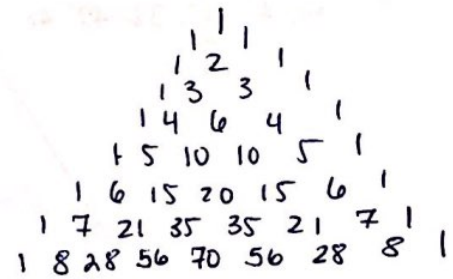 1
1 1
1 2 1
1 3 3 1
1 4 6 4 1
1 5 10 10 5 1
1 6 15 20 15 6 1
1 7 21 35 35 21 7 1
1 8 28 56 70 56 28 8 1